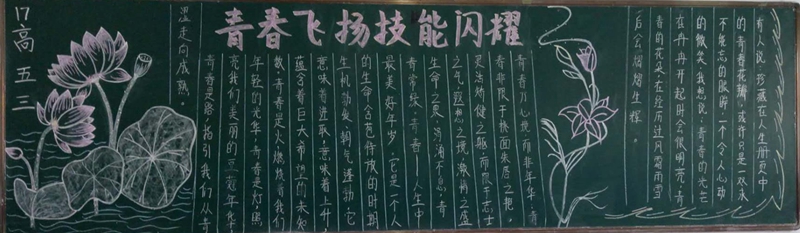 17高五三
青春飞扬技能闪耀
有人说,珍藏在人生册页中
的青春花瓣,或许只是一双永
不能忘的眼眸,一个令人心动
的微笑。我想说,青春的光芒
在丹丹开起时会很明亮,青
春的花朵在经历过风霜雨雪
后会熠熠生辉。
青春乃心境,而非年华,青
春非限于桃面朱唇之艳,
灵活矫健之躯,而限于志士
之气,遐想之境,激情之盛
生命之泉,汹涌不息,青
春常驻。青春——人生中
最美好年岁,它是一个人
的生命含苞待放的时期
生机勃发、朝气蓬勃;它
意味着进取,意味着上升,
蕴含着巨大希望的未知
数。青春是火,燃烧着我们
年轻的光华,青春是灯,照
亮我们美丽的年华
青春是路,指引我们从青
涩走向成熟。